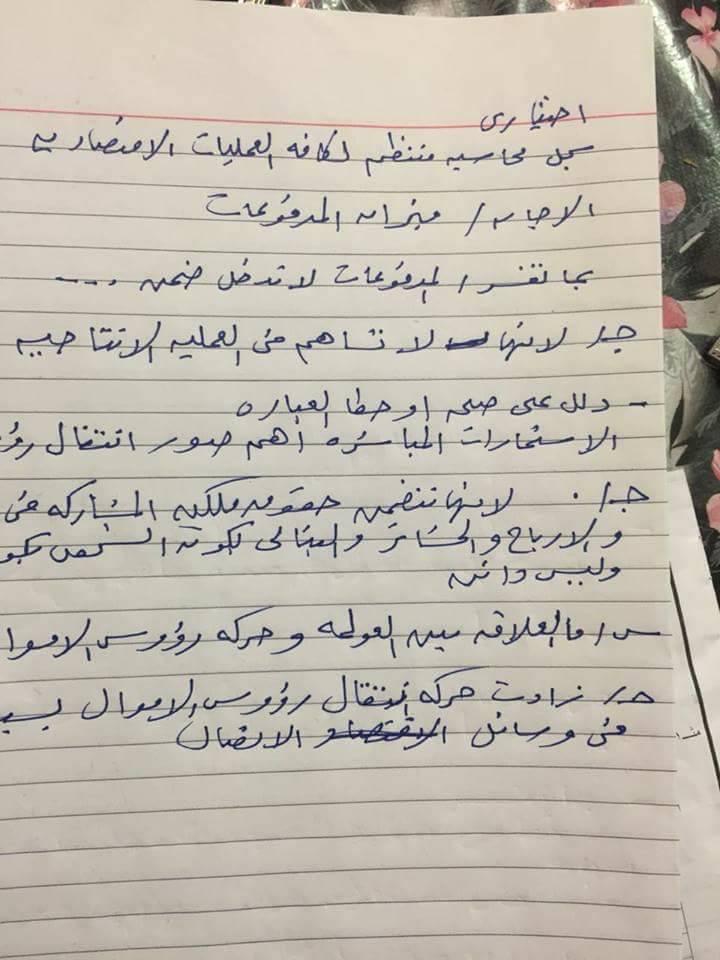 اختيارى
سجل محاسبه منتظم لكافه العمليات الاقتصاديه
الاجابه / ميزان المدفوعات
بما تفسر / المدفوعات لا تدخل ضمن ....
جـ/ لانها لا تساهم فى العمليه الانتاجيه
- دلل على صحه او خطا العباره
الاستثمارات المباشره أهم صور انتقال
جـ/ . لانها تتضمن حقوق ملكيه المشاركه فى
و الارباح و الخسائر و بالتالى يكون الشخص
وليس دائن
س/ ما العلاقه بين العولمه و حركه رؤوس الاموا
جـ/ زادت حركه انتقال رؤوس الاموال
فى وسائل الاتصال